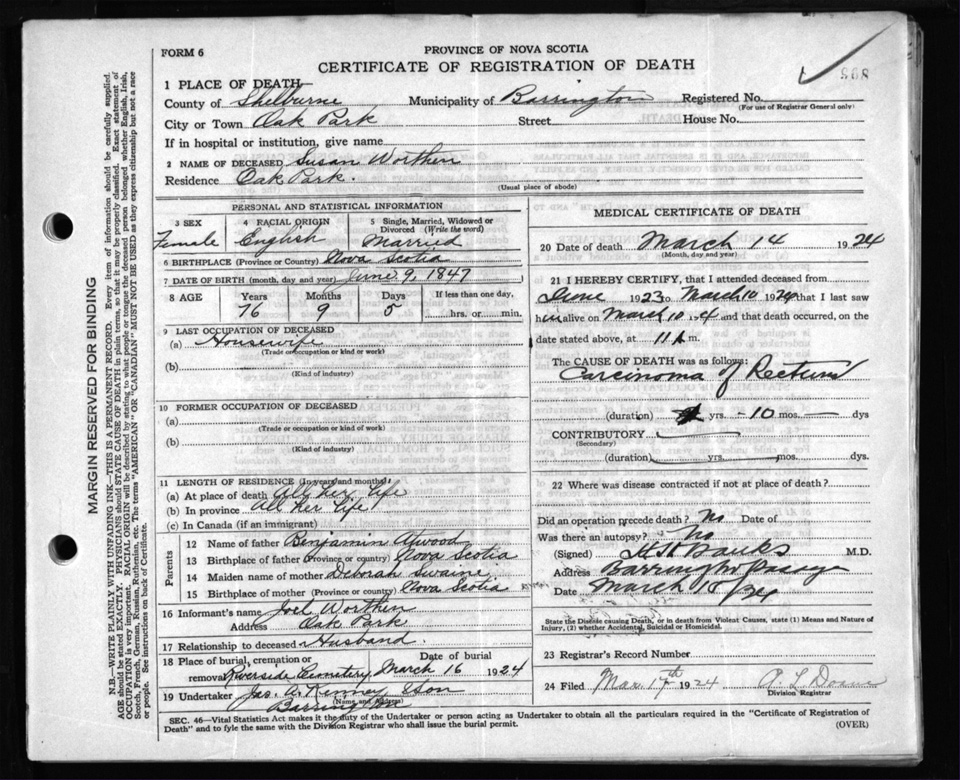 FORM 6
PROVINCE OF NOVA SCOTIA
CERTIFICATE OF REGISTRATION OF DEATH
1 PLACE OF DEATH
County of Shelburne Municipality of Barrington Registered No.
(For use of Registrar General only)
City or Town Oak Park Street House No.
If in hospital or institution, give name
2 NAME OF DECEASED Susan Worthen
Residence Oak Park.
(Usual place of abode)
PERSONAL AND STATISTICAL INFORMATION
3 SEX 4 RACIAL ORIGIN 5 Single, Married, Widowed or Divorced (Write the word)
Female English Married
6 BIRTHPLACE (Province or Country) Nova Scotia
7 DATE OF BIRTH (month, day and year) June 9, 1847
8 AGE Years Months Days If less than one day,
76 9 5 hrs. or min.
9 LAST OCCUPATION OF DECEASED
(a) Housewife
(Trade or occupation or kind or work)
(b)
(Kind of industry)
10 FORMER OCCUPATION OF DECEASED
(a)
(Trade or occupation or kind or work)
(b)
(Kind of industry)
11 LENGTH OF RESIDENCE (In years and months)
(a) At place of death All her life
(b) In province All her life
(c) In Canada (if an immigrant)
Parents
12 Name of father Benjamin Atwood
13 Birthplace of father (Province or country) Nova Scotia
14 Maiden name of mother Deborah Swaine
15 Birthplace of mother (Province or country) Nova Scotia
16 Informant's name Joel Worthen
Address Oak Park
17 Relationship to deceased Husband.
18 Place of burial, cremation or removal Date of burial
Riverside Cemetery March 16 1924
19 Undertaker Jas. A. Kenney & Son
(Name and Address)
Barrington
MEDICAL CERTIFICATE OF DEATH
20 Date of death March 14 1924
(Month, day and year)
21 I HEREBY CERTIFY, that I attended deceased from
June 1923 to March 10 1924 that I last saw
her alive on March 10 and that death occurred, on
date stated above, at 11 m.
The CAUSE OF DEATH was as follows:
Carcinoma of Rectum
(duration) yrs. -10 mos. — dys
CONTRIBUTORY
(Secondary)
(duration) yrs. mos. dys.
22 Where was disease contracted if not at place of death?
Did an operation precede death? No Date of
Was there an autopsy? No
(Signed) Banks M.D.
Address Barrington Passage
Date March
State the Disease causing Death, or in death from Violent Causes, state (1) Means and Nature of
Injury, (2) whether Accidental, Suicidal or Homicidal.
23 Registrar's Record Number
24 Filed Mar. 17th 1924 Doane
Division Registrar
SEC. 46—Vital Statistics Act makes it the duty of the Undertaker or person acting as Undertaker to obtain all the particulars required in the "Certificate of Registration of
Death" and to fyle the same with the Division Registrar who shall issue the burial permit.
(OVER)
MARGIN RESERVED FOR BINDING
N.B.—WRITE PLAINLY WITH UNFADING INK—THIS IS A PERMANENT RECORD. Every item of information should be carefully supplied.
AGE should be stated EXACTLY. PHYSICIANS should STATE CAUSE OF DEATH in plain terms, so that it may be properly classified. Exact statement of
OCCUPATION is very important. RACIAL ORIGIN will be described by stating to what people or tongue the deceased person belonged whether English, Irish,
Scotch, French, German, Russian, Ruthenian, etc. The terms "AMERICAN" OR "CANADIAN" MUST NOT BE USED as they express citizenship but not a race
or people. See instructions on back of Certificate.